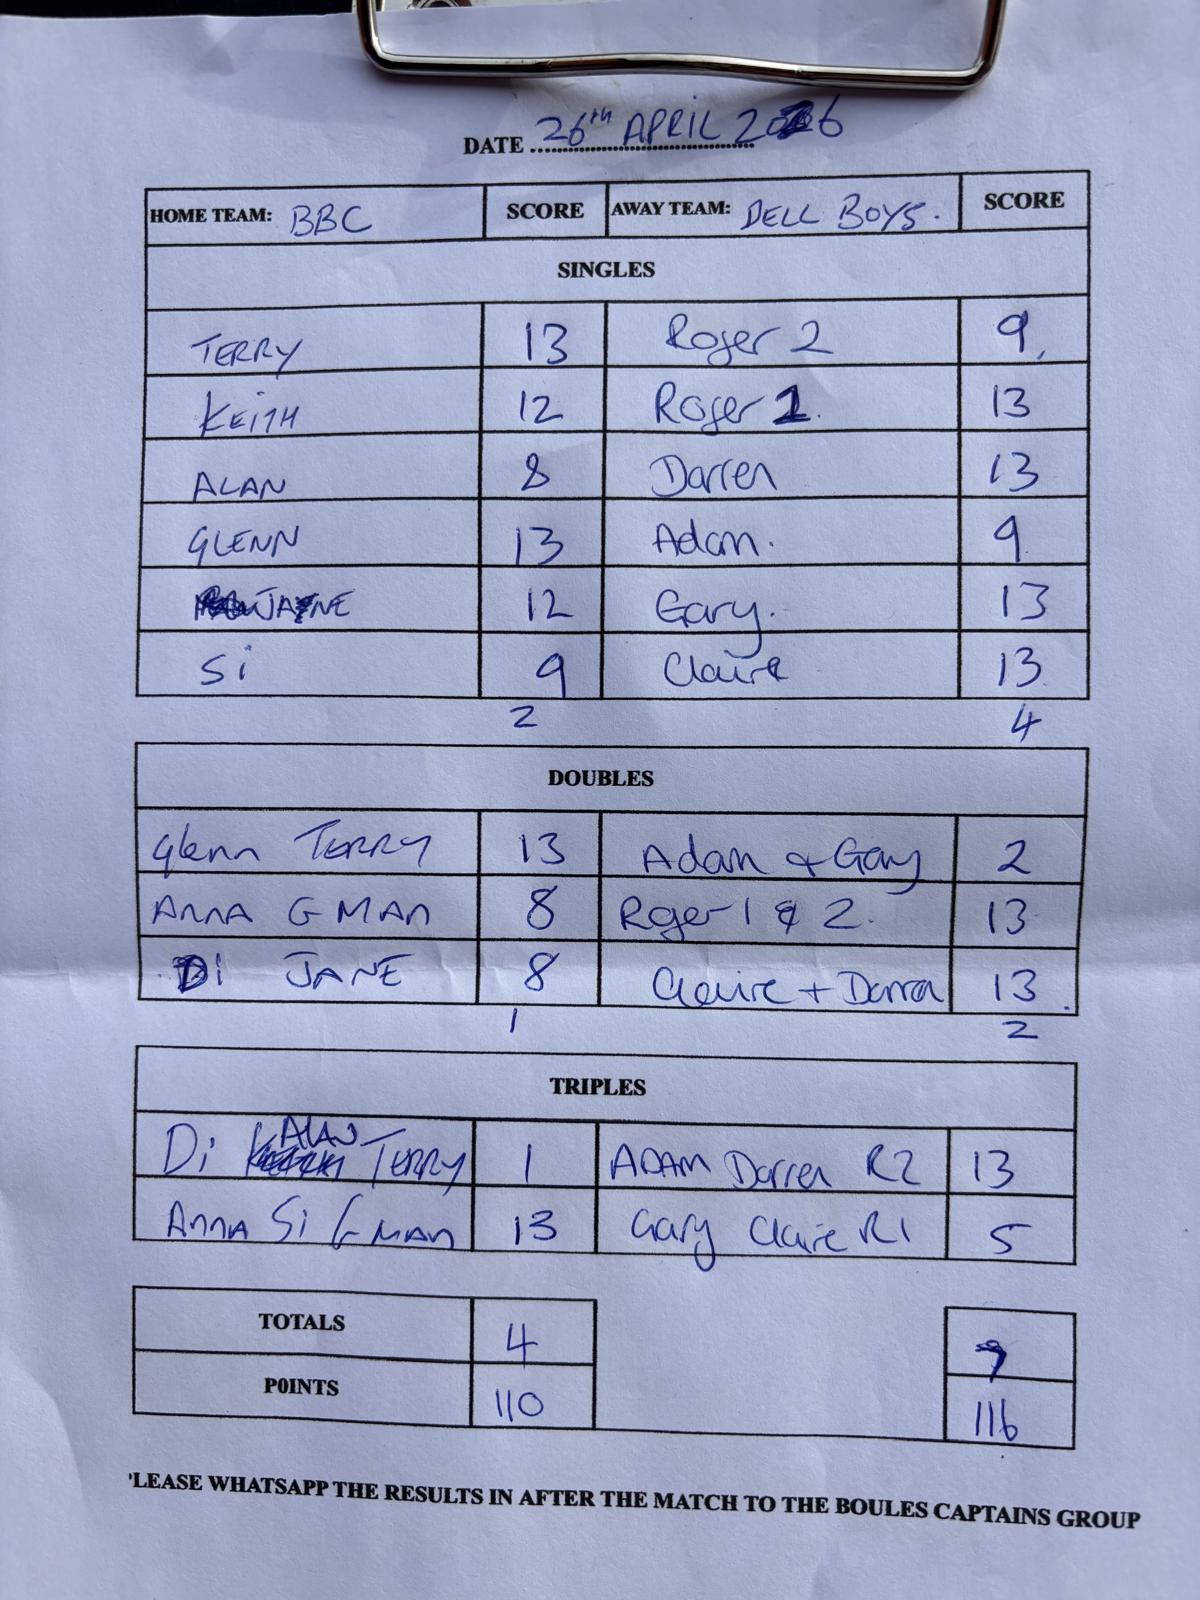 DATE 26th APRIL 2026
HOME TEAM: BBC SCORE AWAY TEAM: DELL BOYS. SCORE
SINGLES
TERRY 13 Roger 2 9
KEITH 12 Roger 1 13
ALAN 8 Darren 13
GLENN 13 Adam. 9
JAYNE 12 Gary. 13
Si 9 Claire 13
2 4
DOUBLES
Glenn TERRY 13 Adam + Gary 2
ANNA G MAN 8 Roger 1 & 2 13
Di JANE 8 Claire + Darren 13
1 2
TRIPLES
Di ALAN TERRY 1 ADAM Darren R2 13
Anna Si G MAN 13 Gary Claire R1 5
TOTALS 4 7
POINTS 110 116
'LEASE WHATSAPP THE RESULTS IN AFTER THE MATCH TO THE BOULES CAPTAINS GROUP